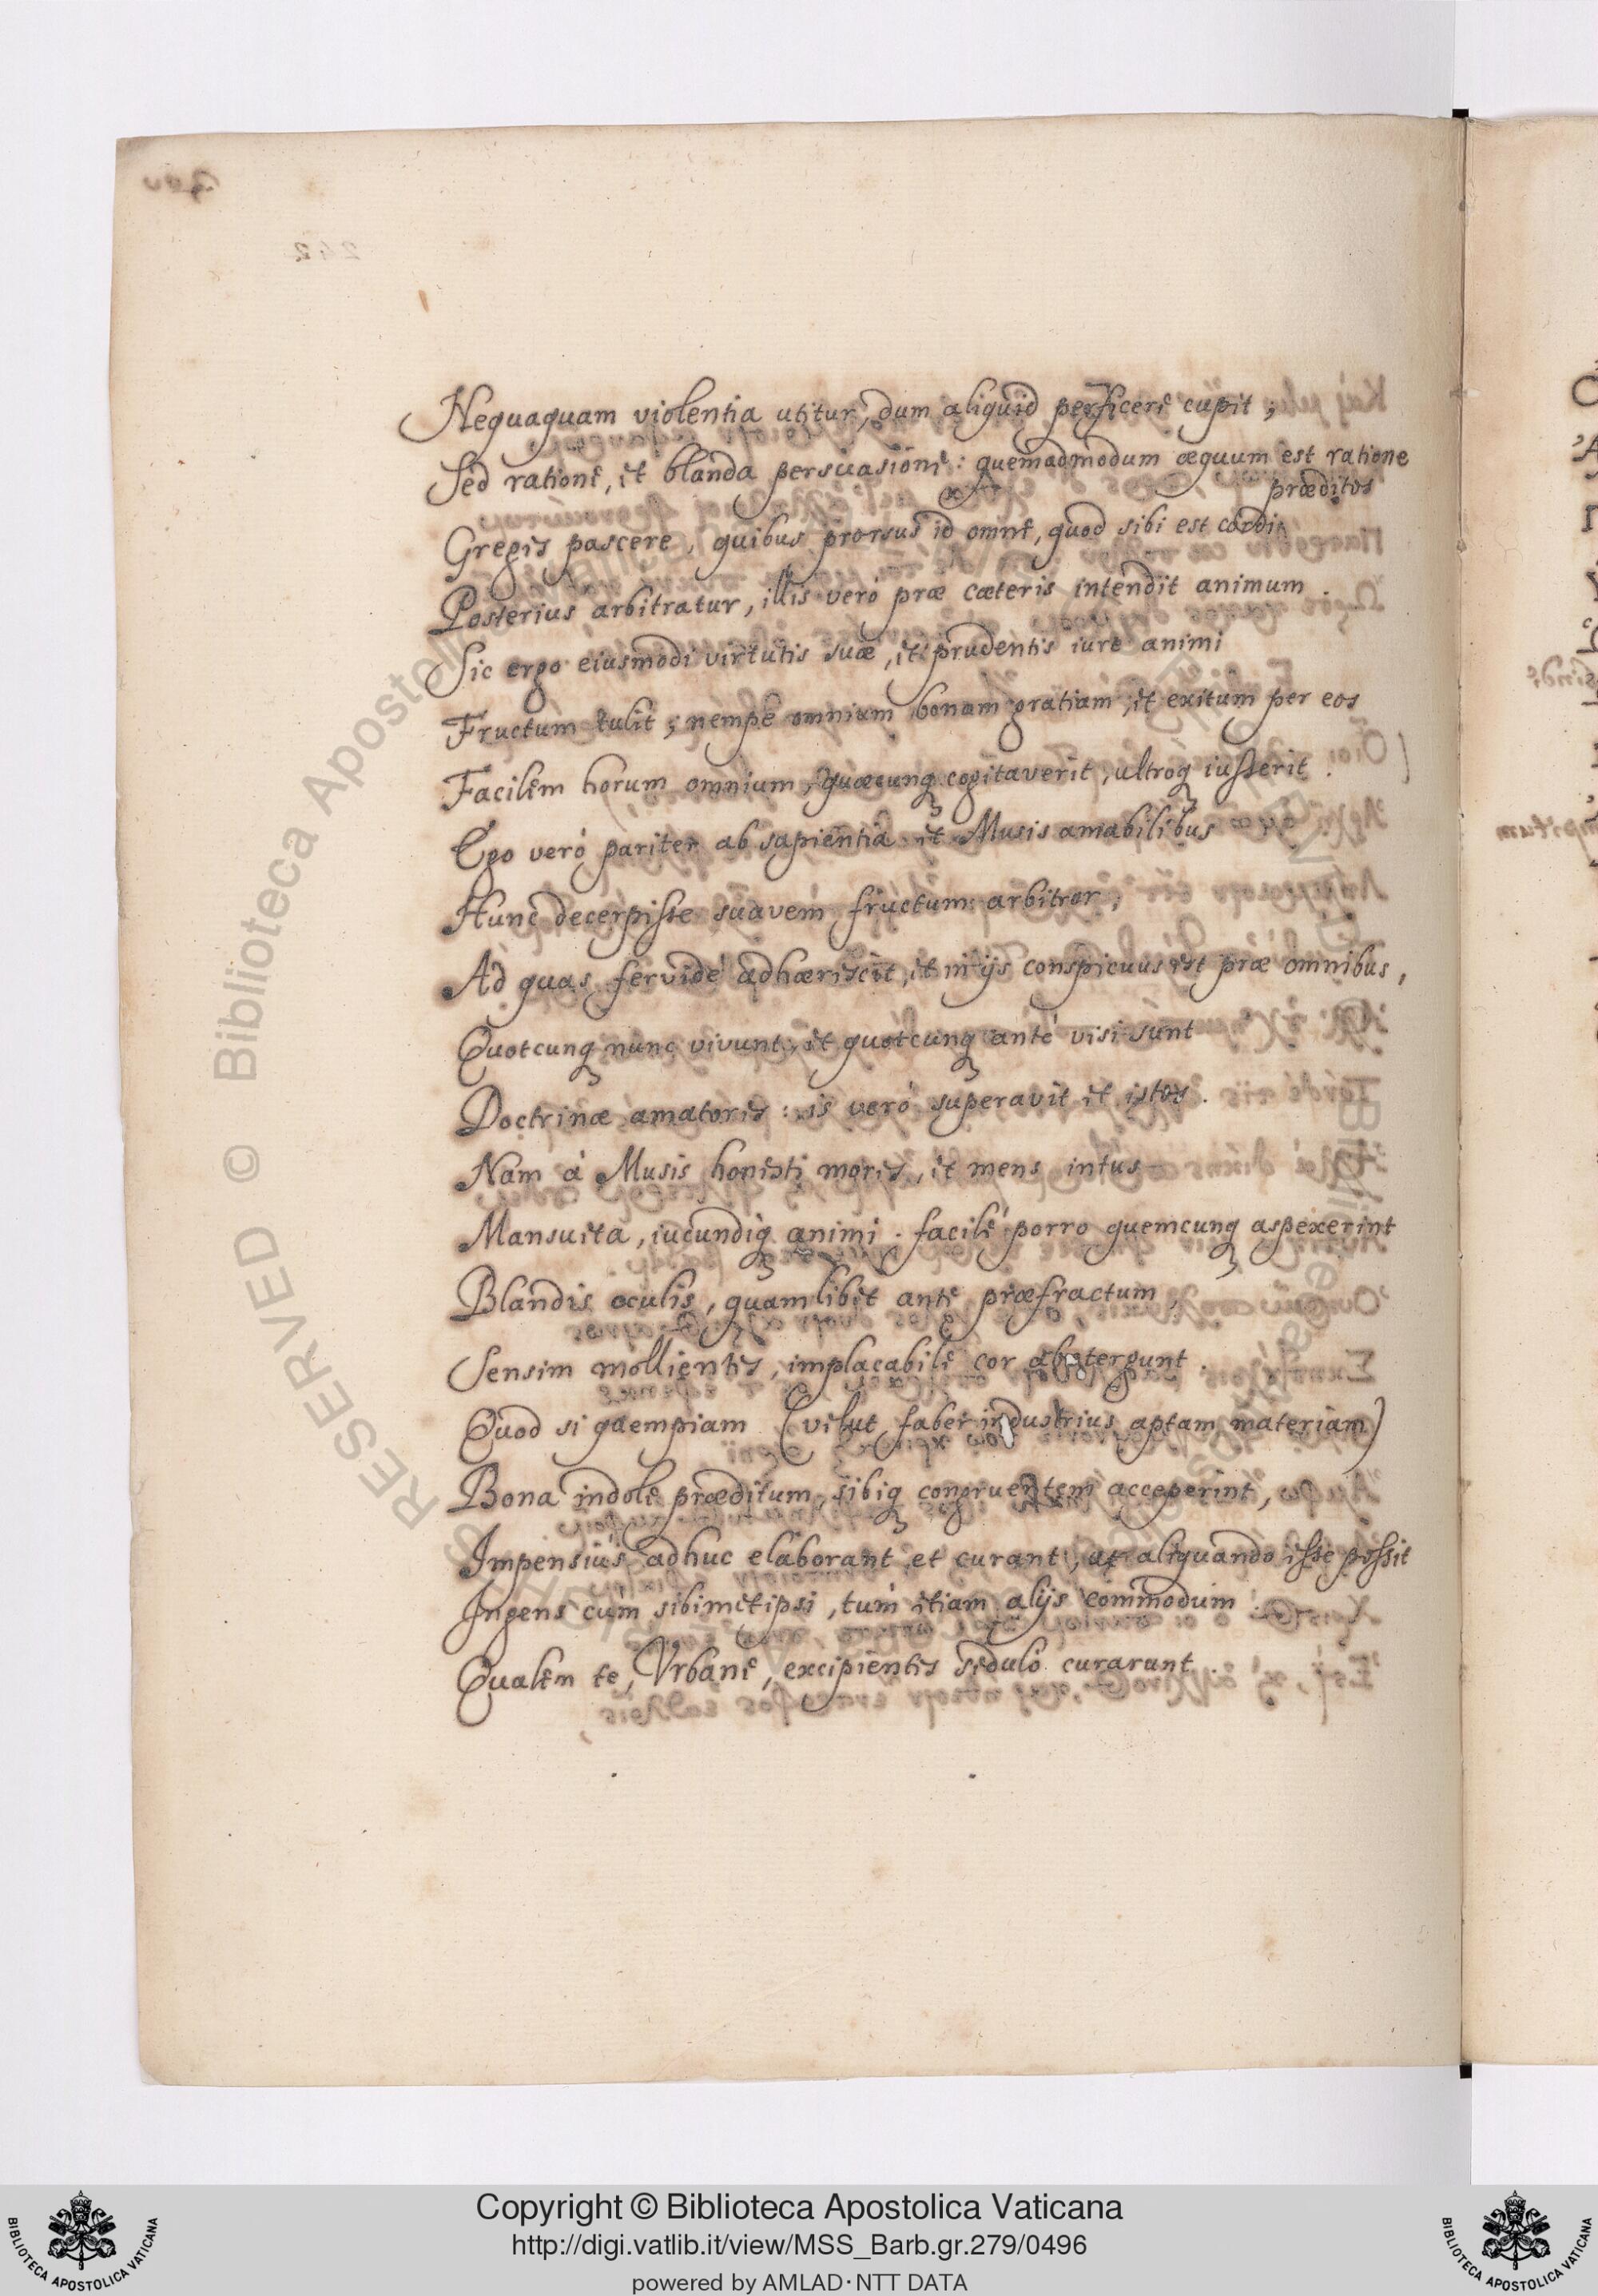 Nequaquam violentia utitur, dum aliquid perficere cupit ;
Sed ratione, et blanda persuasione : quemadmodum æquum est ratione
præditos
Greges pascere , quibus prorsus id omne, quod sibi est cordi,
Posterius arbitratur, illis verò præ cæteris intendit animum .
Sic ergo eiusmodi virtutis suæ , et prudentis iure animi
Fructum tulit ; nempe omnium bonam gratiam , et exitum per eos
Facilem horum omnium , quæcunq cogitaverit , ultroq iusserit .
Ego verò pariter ab sapientia et Musis amabilibus
Hunc decerpisse suavem fructum arbitror ,
Ad quas fervide adhærescit, et in ijs conspicuus est præ omnibus ,
Quotcunq nunc vivunt , et quotcunq ante visi sunt
Doctrinæ amatores : is verò superavit et istos .
Nam à Musis honesti mores , et mens intus
Mansueta , iucundiq animi . facile porro quemcunq aspexerint
Blandis oculis , quamlibet ante præfractum ,
Sensim mollientes , implacabile cor abstergunt .
Quod si quempiam ( velut faber industrius aptam materiam )
Bona indole præditum , sibiq congruentem acceperint ,
Impensius adhuc elaborant et curant , ut aliquando esse possit
Ingens cùm sibimetipsi , tum etiam alijs commodum .
Qualem te , Vrbane , excipientes sedulò curarunt .
Copyright © Biblioteca Apostolica Vaticana
http://digi.vatlib.it/view/MSS_Barb.gr.279/0496
powered by AMLAD·NTT DATA
BIBLIOTECA APOSTOLICA VATICANA
BIBLIOTECA APOSTOLICA VATICANA